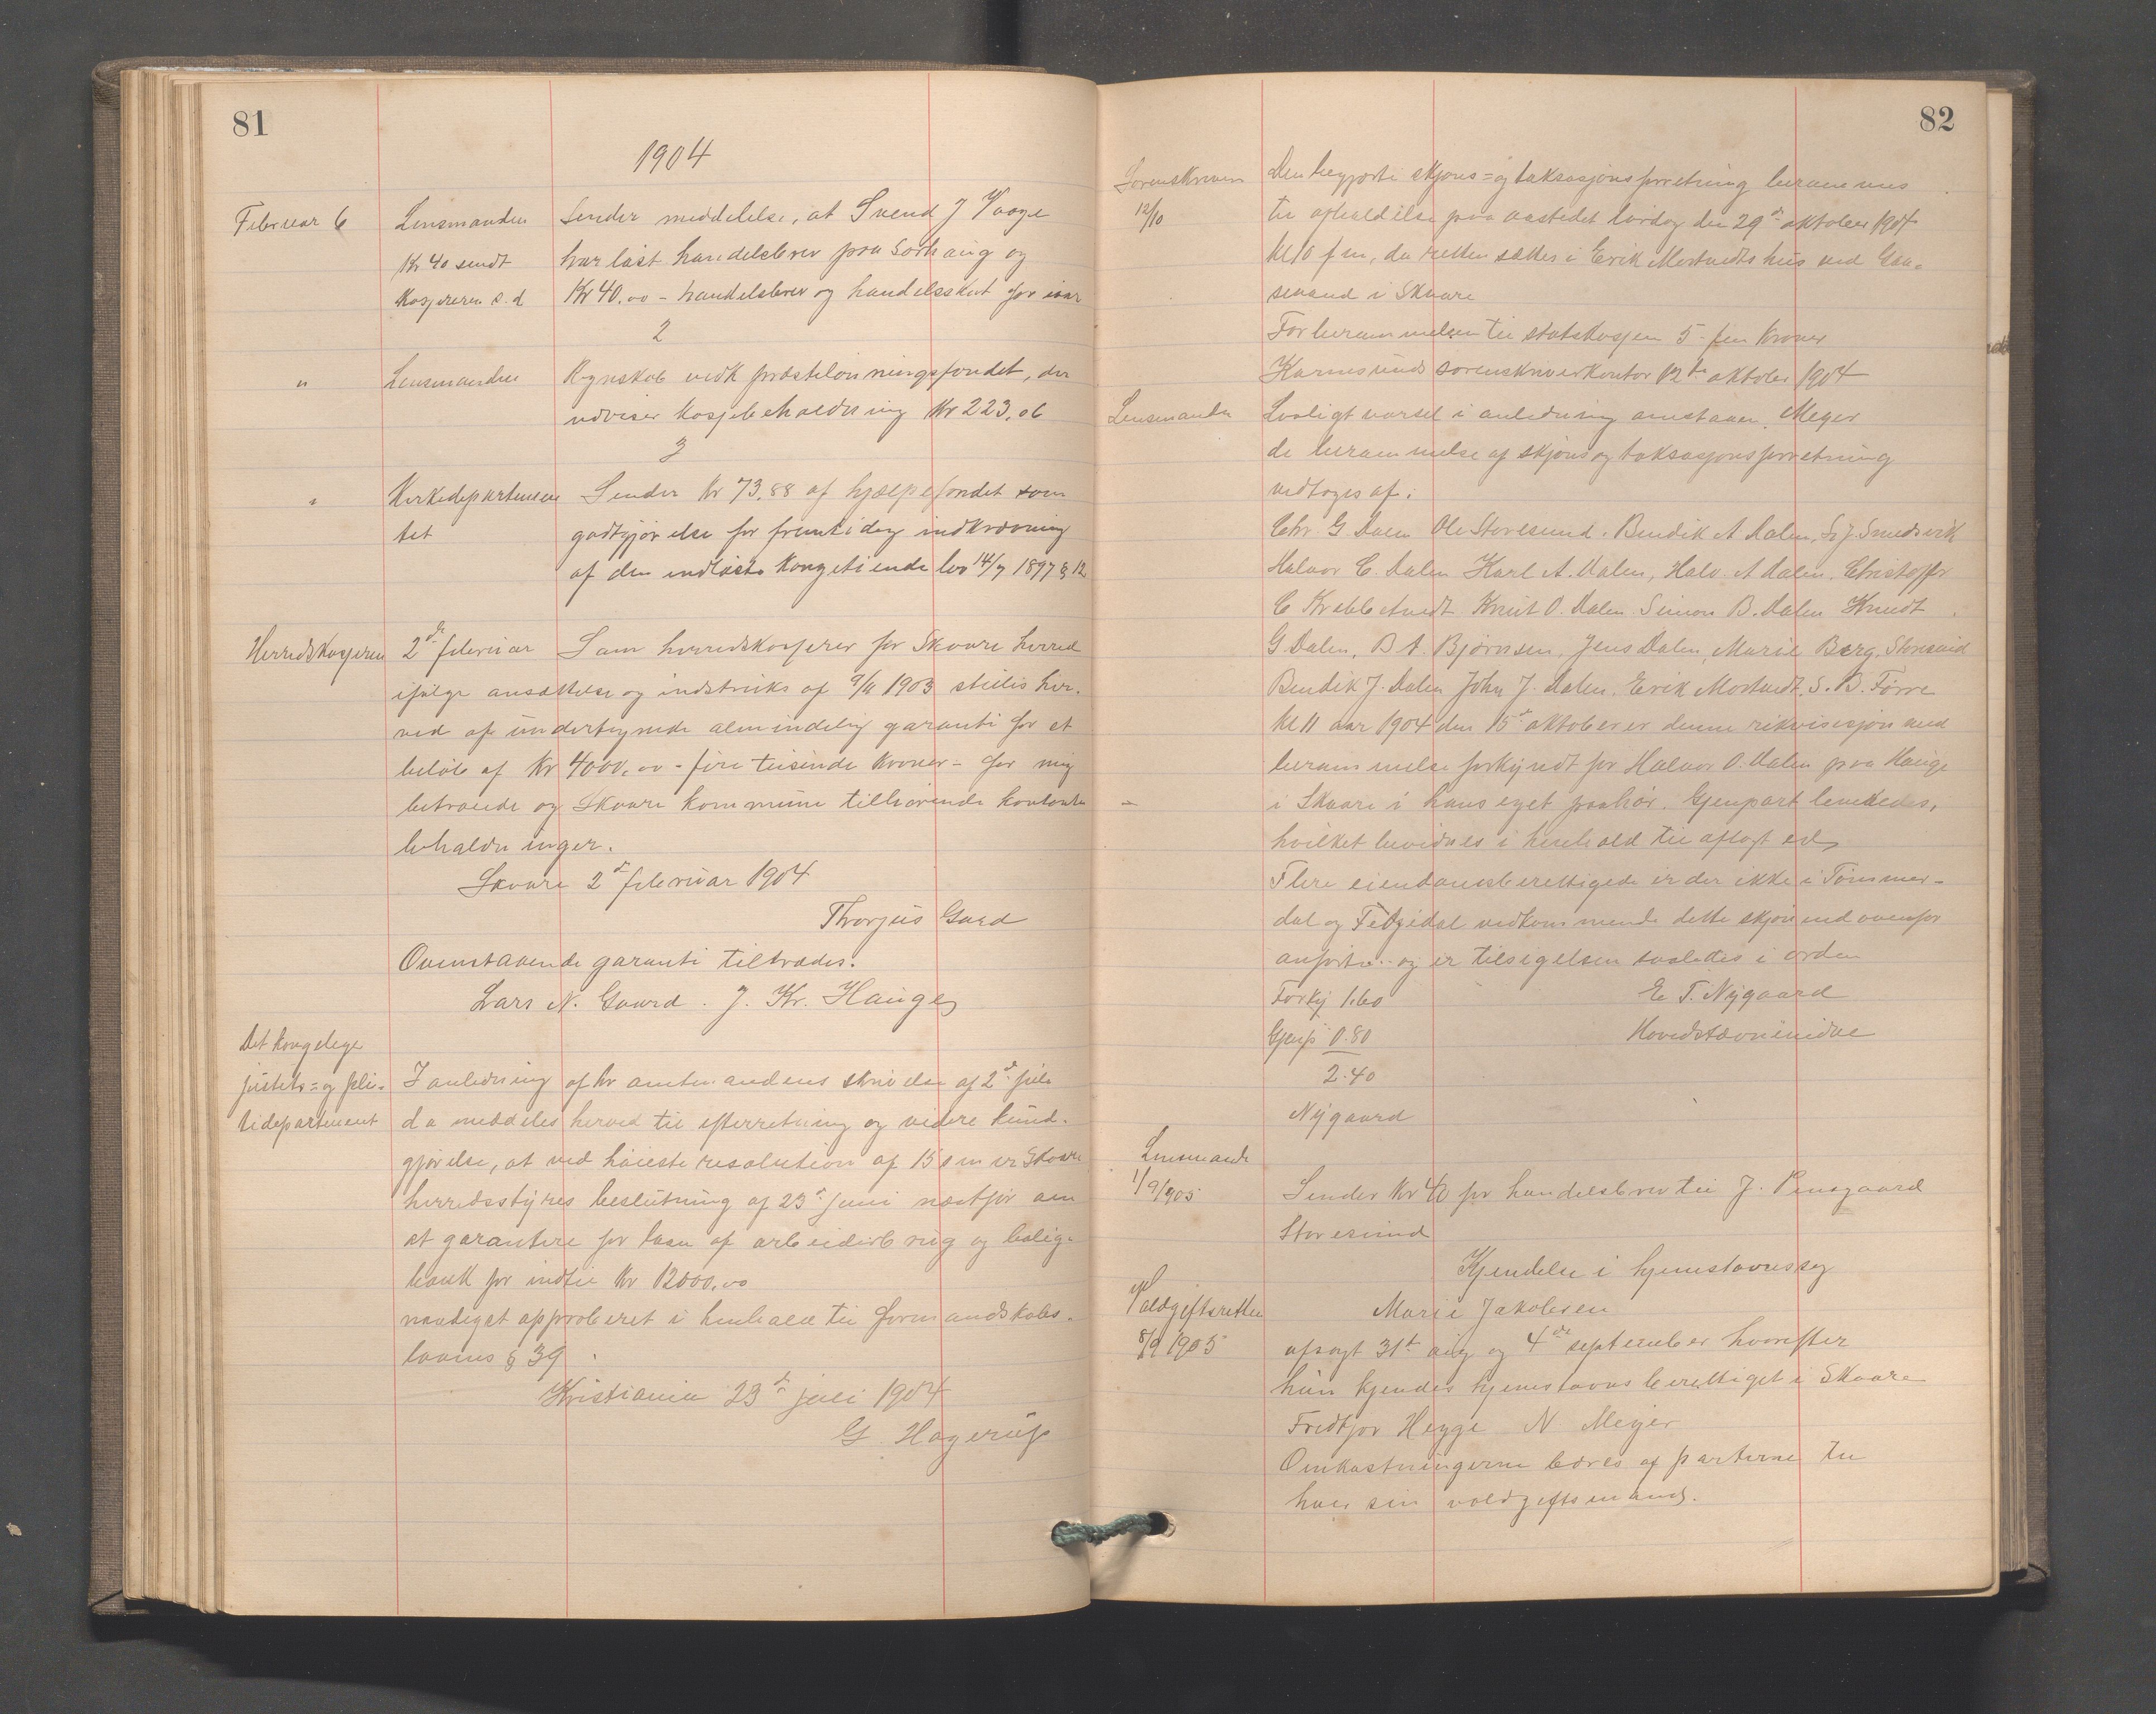 81
1904
Februar 6 Lensmanden Sender meddelelse, at Svend J Vaage
Kr 40 sendt har løst handelsbrev paa Sørhaug og
kasjereren s. d Kr 40,00 - handelsbrev og handelsskat for iaar
2
" Lensmanden Regnskab vedk præstelønningsfondet, der
udviser kasjebeholdning Kr 223,06
3
" Kirkedepartemen Sender Kr 73,88 af hjælpefondet som
tet godtgjørelse for fremtidig indkrævning
af den indløste Kongetiende lov 14/7 1897 § 12
Herredskasjeren 2den februar Som herredskasjerer for Skaare herred
ifølge ansættelse og instruks af 9/11 1903 stilles her-
ved af undertegnede almindelig garanti for et
beløb af Kr 4000,00 - fire tusinde Kroner - for mig
betroede og Skaare kommune tilhørende kontante
beholdninger.
Skaare 2d februar 1904
Thorjus Gard
Ovenstaaende garanti tiltrædes.
Lars N. Gaard. J. Kr. Hauge
Det kongelige
justits= og poli- I anledning af hr amtmandens skrivelse af 2d juli
tidepartement d a meddeles herved til efterretning og videre kund-
gjørelse, at ved høieste resolution af 15 s m er Skaare
herredsstyres beslutning af 23d juni næstfør om
at garantere for laan af arbeiderbrug og bolig-
bank for indtil Kr 12000,00
naadigst approberet i henhold til formandskabs-
lovens § 39
Kristiania 23d juli 1904
G. Hagerup
82
Sorenskriveren Den begjærte skjøns= og taksasjonsforretning berammes
12/10 til afholdelse paa aastedet lørdag den 29d oktober 1904
kl 10 f m, da retten sættes i Erik Mostvedts hus ved
i Skaare
For berammelsen til statskasjen 5 - fem Kroner
Karmsunds sorenskriverkontor 12te oktober 1904
Lensmanden Lovligt varsel i anledning Meyer
de berammelse af skjøns og taksasjonsforretning
vedtages af:
Chr. G. Dalen Ole Storesund. Bendik A Dalen, S. J. Smedsvik
Halvor C. Dalen Karl A. Dalen, Halv. A Dalen. Christoffer
C Krabbetvedt Knut O. Dalen Simon B. Dalen Knudt
G Dalen, B A. Bjørnsen, Jens Dalen, Marie Berg, Storesund
Bendik J. Dalen John J. Dalen. Erik Mostvedt. S. B. Førre
Kl 11 aar 1904 den 15d oktober er denne rikvisisjon med
berammelse forkyndt for Halvor O. Dalen paa Hauge
" i Skaare i hans eget paahør. Gjenpart levedes,
hvilket bevidnes i henhold til aflagt ed
Flere eiendomsberettigede er der ikke i Tømmer-
dal og vedkommende dette skjøn end ovenfor
anførte og er tilsigelsen saaledes i orden
Forky 1.60 E T. Nygaard
Gjenp 0.80 Hovedstævnevidne
2.40
Nygaard
Lensmanden
1/9 1905 Sender Kr 40 for handelsbrev til J.
Storesund
Kjendelse i hjemstavnssag
Voldgiftsretten Marie Jakobsen
8/9 1905 afsagt 31te aug og 4de september hvorefter
hun kjendes hjemstavnsberettiget i Skaare
Fredtjov Hegge N. Meyer
Omkostningerne bæres af parterne til
hver sin voldgiftsmand.